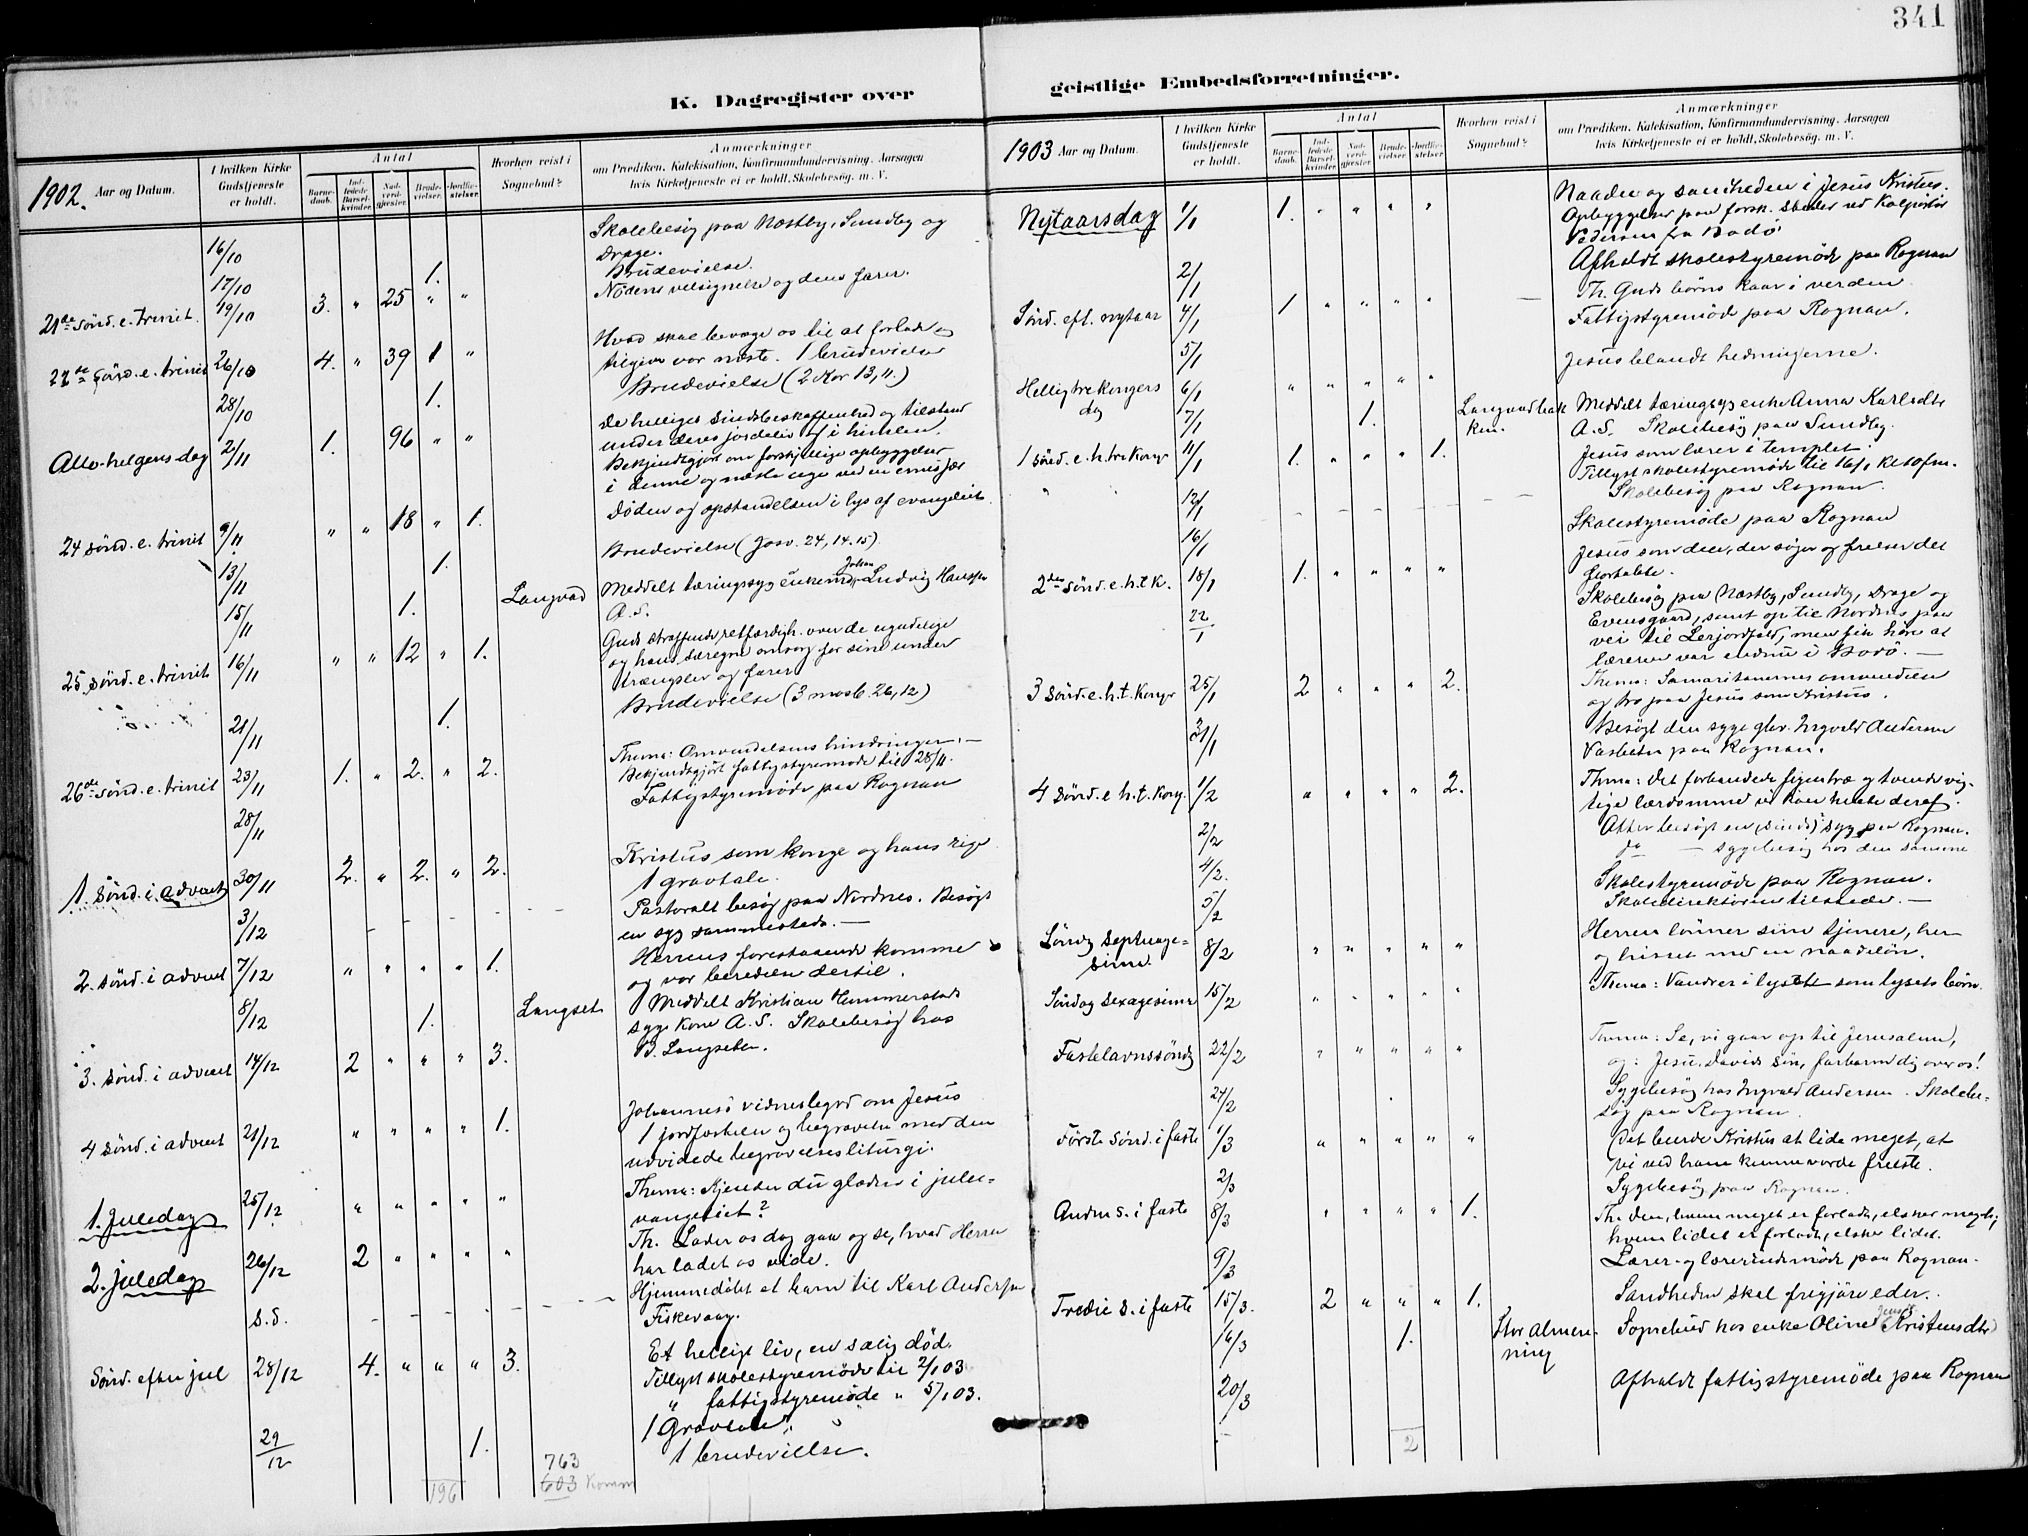 341
K. Dagregister over
1902. Aar og Datum.
I hvilken Kirke Gudstjeneste er holdt.
Antal
Barnedaab.
Indledede Barselkvinder.
Nadverdgjester.
Brudevielser.
Jordfæstelser.
Hvorhen reist i Sognebud?
Anmærkninger
om Prædiken, Katekisation, Konfirmandundervisning. Aarsagen
hvis Kirketjeneste ei er holdt. Skolebesøg. m. V.
16/10 Skolebesøg paa Næstby, Sundby og
Drage.
17/10 1. Brudevielse.
21de sønd. e. trinit. 19/10 3. " 25 " " Nødens velsignelse og dens farer.
22de sønd. e. trinit 26/10 4. " 39 1 " Hvad skal bevæge os til at forlade og
tilgive vor næste. 1 brudevielse
28/10 1. Brudevielse (2 Kor 13, 11.)
Alle-helgens dag 2/11 1. 96 " " De helliges sindsbeskaffenhed og tilstand
under deres jordeliv og i himlen.
Bekjendtgjort om forskjellige opbyggelser
i denne og næste uge ved en emissær
24 sønd. e. trinit 9/11 " " 18 " 1. Døden og opstandelsen i lys af evangeliet.
13/11 1. Brudevielse (Josv. 24, 14. 15).
15/11 1. Langvad Meddelt tæringssyg enkemd. Johan Ludvig Hanssen
A. S.
25 sønd. e. trinit 16/11 " " 12 " 1. Guds straffende retfærdigh. over de ugudelige
og hans særegne omsorg for sine under
trængsler og farer
21/11 1. Brudevielse (3 moseb. 26, 12)
26de sønd. e. trinit 23/11 1. " 2. " 2. Thema: Omvendelsens hindringer. —
Bekjendtgjort fattigstyremøde til 28/11.
28/11 Fattigstyremøde paa Rognan
1. Sønd. i advent 30/11 2. " 2. " 2. Kristus som konge og hans rige
1 gravtale.
3/12 Pastoralt besøg paa Nordnes. Besøgt
en syg sammesteds. —
2. sønd. i advent 7/12 " " " " 1. Herrens forestaaende komme
og vor beredelse dertil.
8/12 1. Langset Meddelt Kristian Hammerstads
syge kone A. S. Skolebesøg hos
B. Langseter.
3. sønd. i advent 14/12 2 " " " 3.
4 sønd. i advent 21/12 " " " " 1. Johannes's vidnesbyrd om Jesus
1 jordfæstelse og begravelse med den
udvidede begravelsesliturgi.
1. Juledag 25/12 " " " " " Thema: Kjender du glæden i julee-
vangeliet?
2. juledag 26/12 2 " " " " Th. Lader os dog gaa og se, hvad Herren
har ladet os vide.
s. d. Hjemmedøbt et barn til Karl Andersen
Fiskevaag.
Sønd. efter jul 28/12 4. " " " 3. Et helligt liv, en salig død.
Tillyst skolestyremøde til 2/1 03
" fattigstyremøde " 5/1 03.
1 Gravtale
29/12 1. 1 brudevielse.
196
763
603 Komm
geistlige Embedsforretninger.
1903 Aar og Datum.
I hvilken Kirke Gudstjeneste er holdt.
Antal
Barnedaab.
Indledede Barselkvinder.
Nadverdgjester.
Brudevielser.
Jordfæstelser.
Hvorhen reist i Sognebud?
Anmærkninger
om Prædiken, Katekisation, Konfirmandundervisning. Aarsagen
hvis Kirketjeneste ei er holdt. Skolebesøg. m. V.
Nytaarsdag 1/1 1. " " " " Naaden og sandheden i Jesus Kristus.
Opbyggelser paa forsk. steder ved Kolportør
Pedersen fra Bodø
2/1 Afholdt skolestyremøde paa Rognan
Sønd. eft. nytaar 4/1 1 " " " " Th. Guds børns kaar i verden
5/1 Fattigstyremøde paa Rognan.
Hellig tre Kongers dag 6/1 " " " " " Jesus blandt hedningerne.
7/1 1. Langvadbakken. Meddelt tæringssyg enke Anna Karlsdtr
A. S. Skolebesøg paa Sundby.
1 sønd. e. h. tre Kong. 11/1 1. " " " 1. Jesus som lærer i templet
Tillyst skolestyremøde til 16/1 Kl 10 fm.
12/1 Skolebesøg paa Rognan.
16/1 Skolestyremøde paa Rognan
2den sønd. e. h. t K. 18/1 1. " " " " Jesus som den, der søger og frelser det
fortabte.
22/1 Skolebesøg paa Næstby, Sundby, Drage og
Evensgaard, samt op til Nordnes paa
vei til Lerjordfald, men fik høre at
læreren var endnu i Bodø. —
3 Sønd. e. h. t. Konger 25/1 2 " " " 2. Thema: Samaritanernes omvendelse
og tro paa Jesus som Kristus.
31/1 Besøgt den syge glbr. Ingvald Andersen
Vasbotn paa Rognan.
4 sønd. e h. t. Kong. 1/2 " " " " 2. Thema: Det forbandede figentræ og tvende vig-
tige lærdomme vi kan hente deraf.
2/2 Atter besøgt en (sinds) syg paa Rognan.
4/2. do — sygebesøg hos den samme
5/2 Skolestyremøde paa Rognan.
Skoledirektøren tilstede. —
Søndag Septuage-
sima. 8/2 " " " " " Herren lønner sine tjenere, her
og hisset med en naadeløn.
Søndag Sexagesima 15/2 " " " " " Thema: Vandrer i lyset som lysets børn.
Fastelavnssøndg 22/2 " " " " " Thema: Se, vi gaar op til Jerusalem,
og: Jesu, Davids Søn, forbarm dig over os!
24/2 Sygebesøg hos Ingvald Andersen. Skolebe-
søg paa Rognan.
Første Sønd. i faste 1/3 " " " " " Det burde Kristus at lide meget, at
vi ved ham kunne vorde frelste.
2/3 Sygebesøg paa Rognan.
Anden S. i faste 8/3 " " " " 1. Th. Den, hvem meget er forladt, elsker meget;
hvem lidet er forladt, elsker lidet.
9/3 Lærer- og lærerindemøde paa Rognan.
Tredie S. i faste 15/3. 2 " " " 1. Sandheden skal frigjøre eder.
16/3 1. Stor Almen-
ning Sognebud hos enke Oline Kristensdtr
20/3 Afholdt fattigstyremøde paa Rognan
2